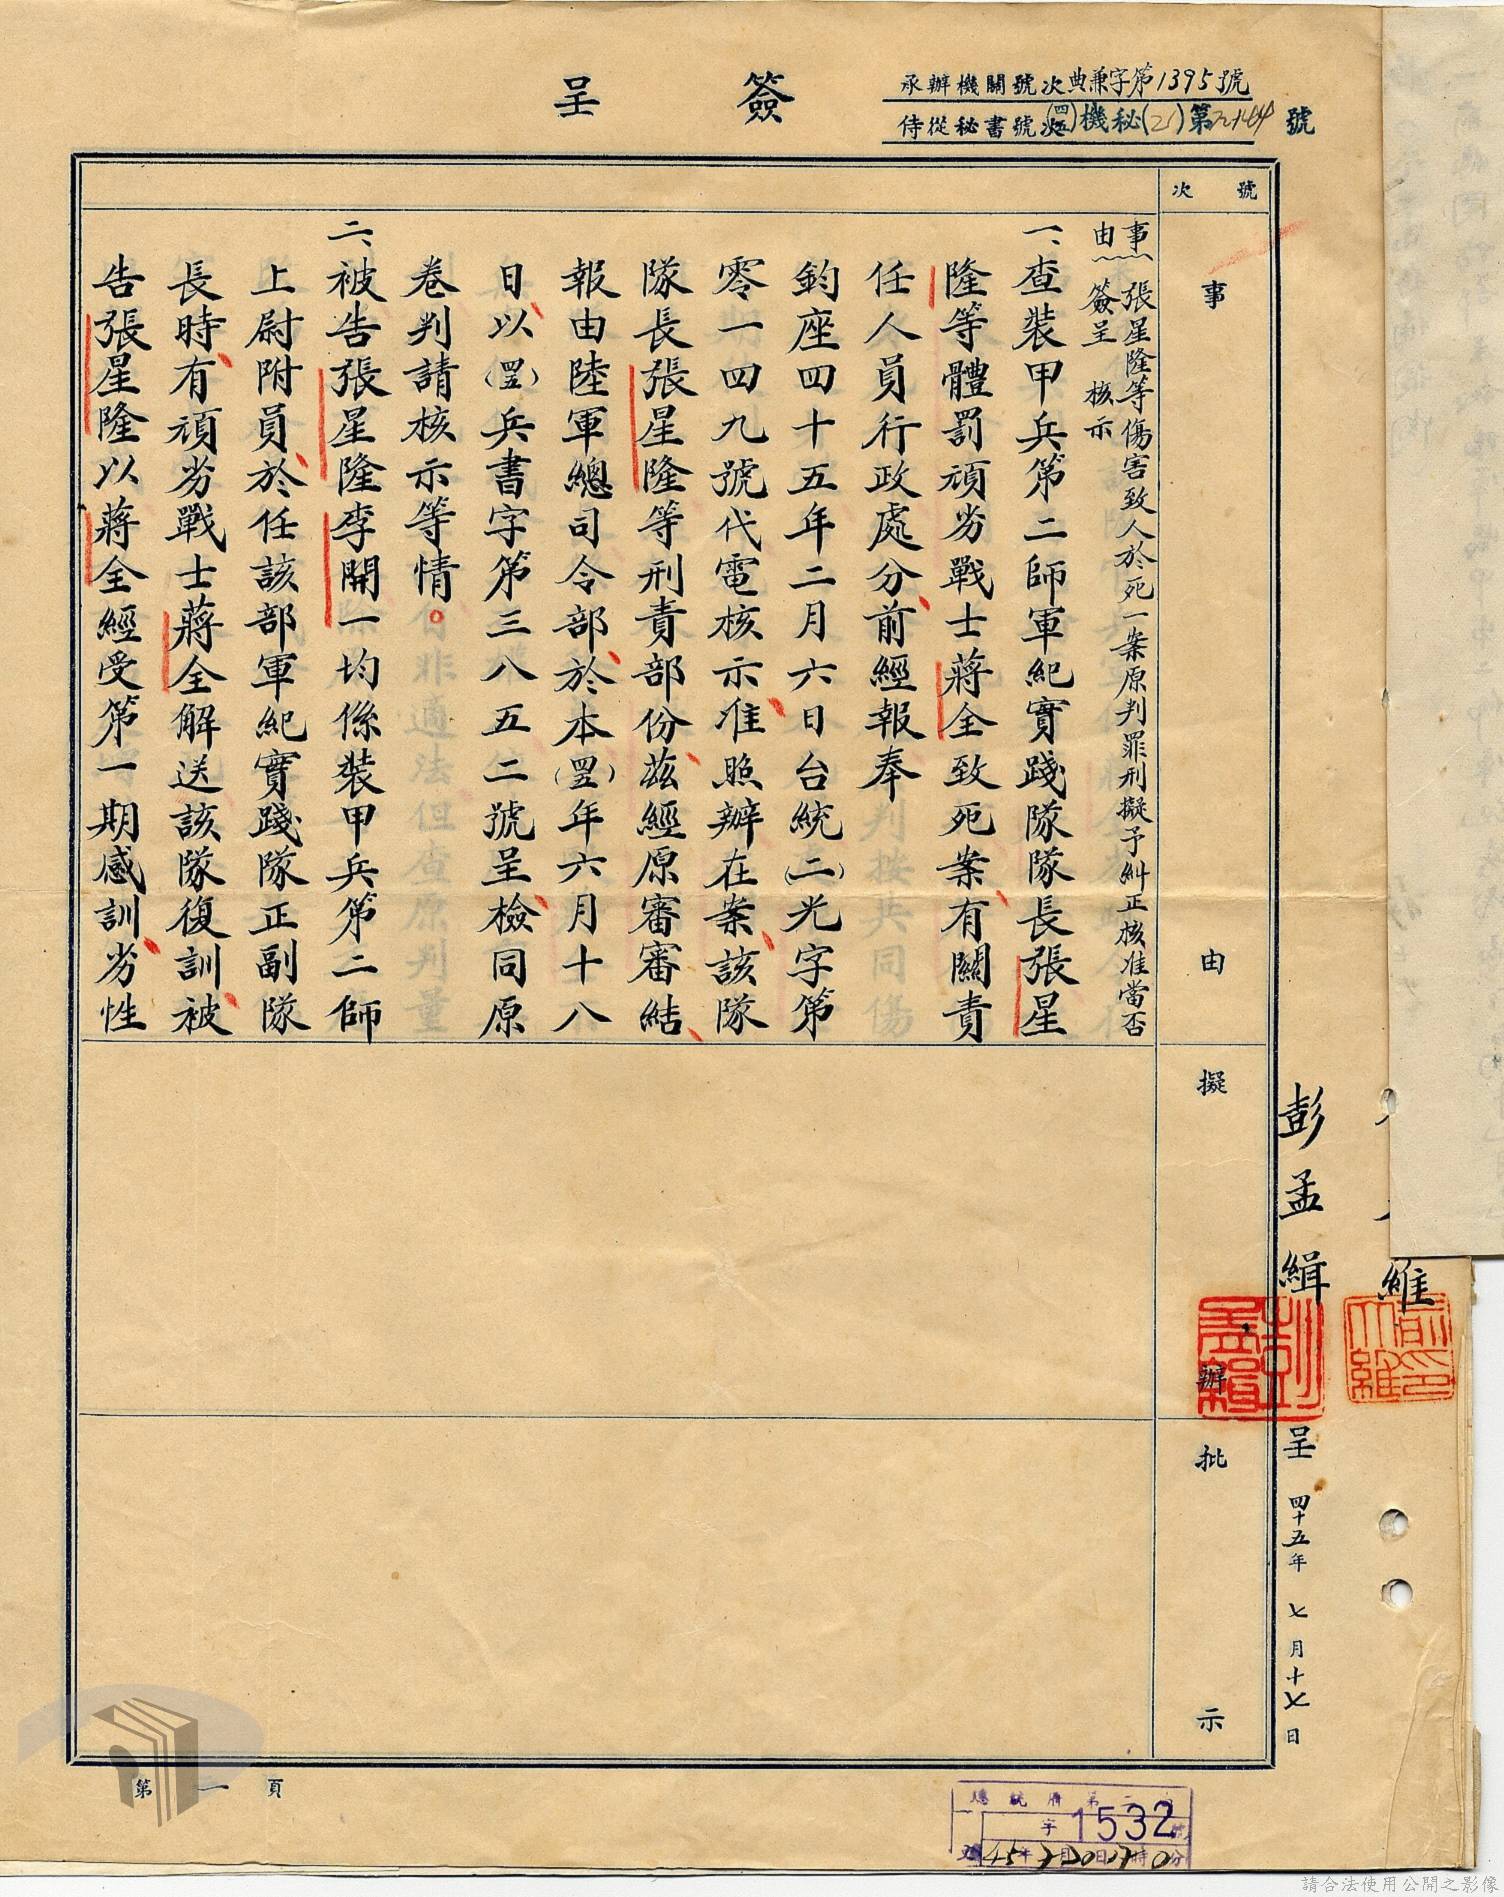 簽呈
承辦機關號次典兼字第1395號
侍從秘書號次(四五)機秘(乙)第 號
號次
事由
擬辦
批示
事由
張星隆等傷害致人於死一案原判罪刑擬予糾正核准當否
簽呈 核示
一、查裝甲兵第二師軍紀實踐隊隊長張星
隆等體罰頑劣戰士蔣全致死案有關責
任人員行政處分前經報奉
鈞座四十五年二月六日台統(二)光字第
零一四九號代電核示准照辦在案該隊
隊長張星隆等刑責部份茲經原審審結
報由陸軍總司令部於本(四五)年六月十八
日以(四五)兵書字第三八五二號呈檢同原
卷判請核示等情。
二、被告張星隆李開一均係裝甲兵第二師
上尉附員於任該部軍紀實踐隊正副隊
長時有頑劣戰士蔣全解送該隊復訓被
告張星隆以蔣全經受第一期感訓劣性
維
俞大維印
彭孟緝
彭孟緝
呈 四十五年七月十七日
第一頁
總統府第二
字1532號
45年 月 日 時 分
請合法使用公開之影像